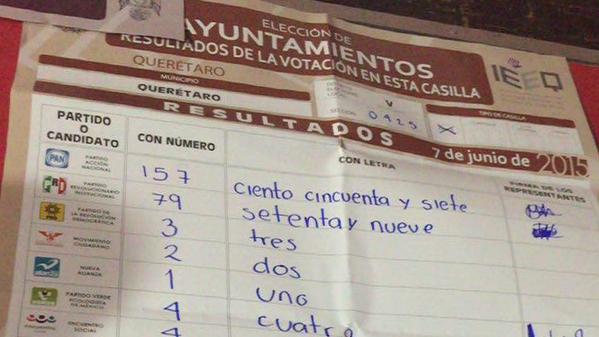 ELECCIÓN DE
AYUNTAMIENTOS
RESULTADOS DE LA VOTACIÓN EN ESTA CASILLA
IEEQ
QUERÉTARO
MUNICIPIO
QUERÉTARO
V
SECCIÓN 0925
TIPO DE CASILLA
RESULTADOS
7 de junio de 2015
PARTIDO O CANDIDATO
CON NÚMERO
CON LETRA
FIRMA DE LOS REPRESENTANTES
PAN PARTIDO ACCIÓN NACIONAL 157 ciento cincuenta y siete
PRI PARTIDO REVOLUCIONARIO INSTITUCIONAL 79 setenta y nueve
PRD PARTIDO DE LA REVOLUCIÓN DEMOCRÁTICA 3 tres
MOVIMIENTO CIUDADANO 2 dos
NUEVA ALIANZA 1 uno
PARTIDO VERDE ECOLOGISTA DE MÉXICO 4 cuatro
ENCUENTRO SOCIAL 4